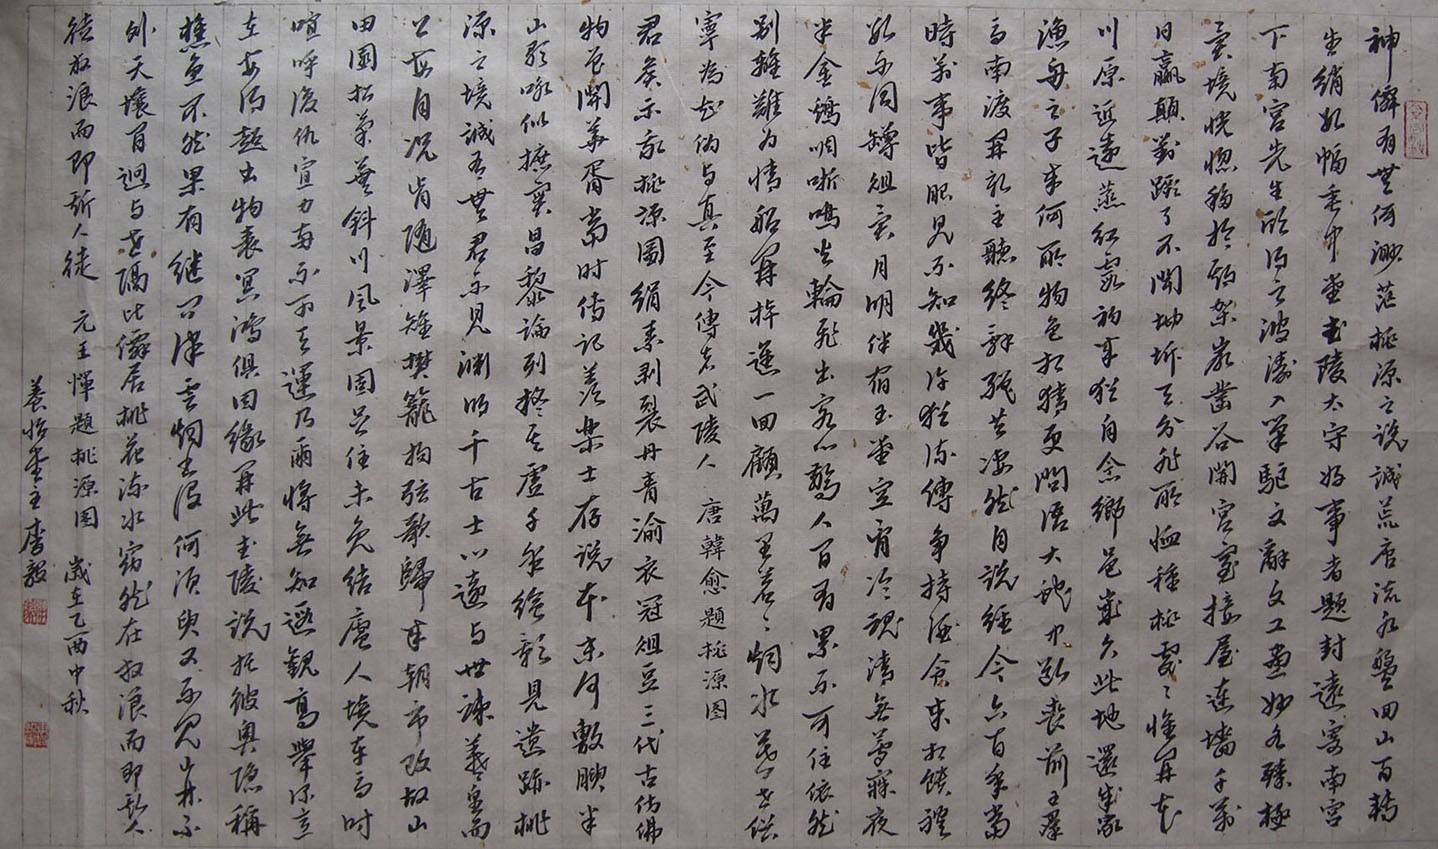 神僊有無何渺茫桃源之說誠荒唐流水盤回山百轉
生綃數幅垂中堂武陵太守好事者題封遠寄南宮
下南宮先生欣得之波濤入筆驅文辭文工畫妙各臻極
異境恍惚移於斯架巖鑿谷開宮室接屋連墻千萬
日嬴顛劉蹶了不聞地坼天分非所恤種桃處々惟開花
川原近遠蒸紅霞初来猶自念鄉邑歲久此地還成家
漁舟之子来何所物色相猜更問語大蛇中斷喪前王羣
馬南渡開新主聽終辭絕共凄然自說經今六百年當
時萬事皆眼見不知幾許猶流傳争持酒食来相饋禮
數不同罇俎異月明伴宿玉堂空骨冷魂清無夢寐夜
半金鷄啁哳鳴火輪飛出客心驚人間有累不可住依然
別離難為情船開棹進一回顧萬里蒼々烟水暮世俗
寧為知偽与真至今傳者武陵人 唐韓愈題桃源图
君家示我桃源圖絹素剥裂丹青渝衣冠俎豆三代古仿佛
物色開華胥當时傳記善樂士存說本末何敷腴半
山歌咏似摭實昌黎論列至虛千年繪彩見遺跡桃
源之境誠有無君不見淵明千古士心遠与世疎羲皇而
上每自况肯随澤雉樊籠拘弦歌歸来朝市改故山
田園松菊蕪斜川風景固足住未免結廬人境車馬时
喧呼復仇宣力两不可天運乃爾將無如遐觀高舉深意
在安得超出物表冥鴻俱因緣再此武陵說托彼奥隐稱
樵漁不然果有继問津雲烟出没何須臾又不見山林不
外天壤間迥与世隔比僻居桃花流水窈然在放浪而即斯人
徒放浪而即斯人徒 元王惲題桃源图 歲在乙酉中秋
養怡堂主李毅